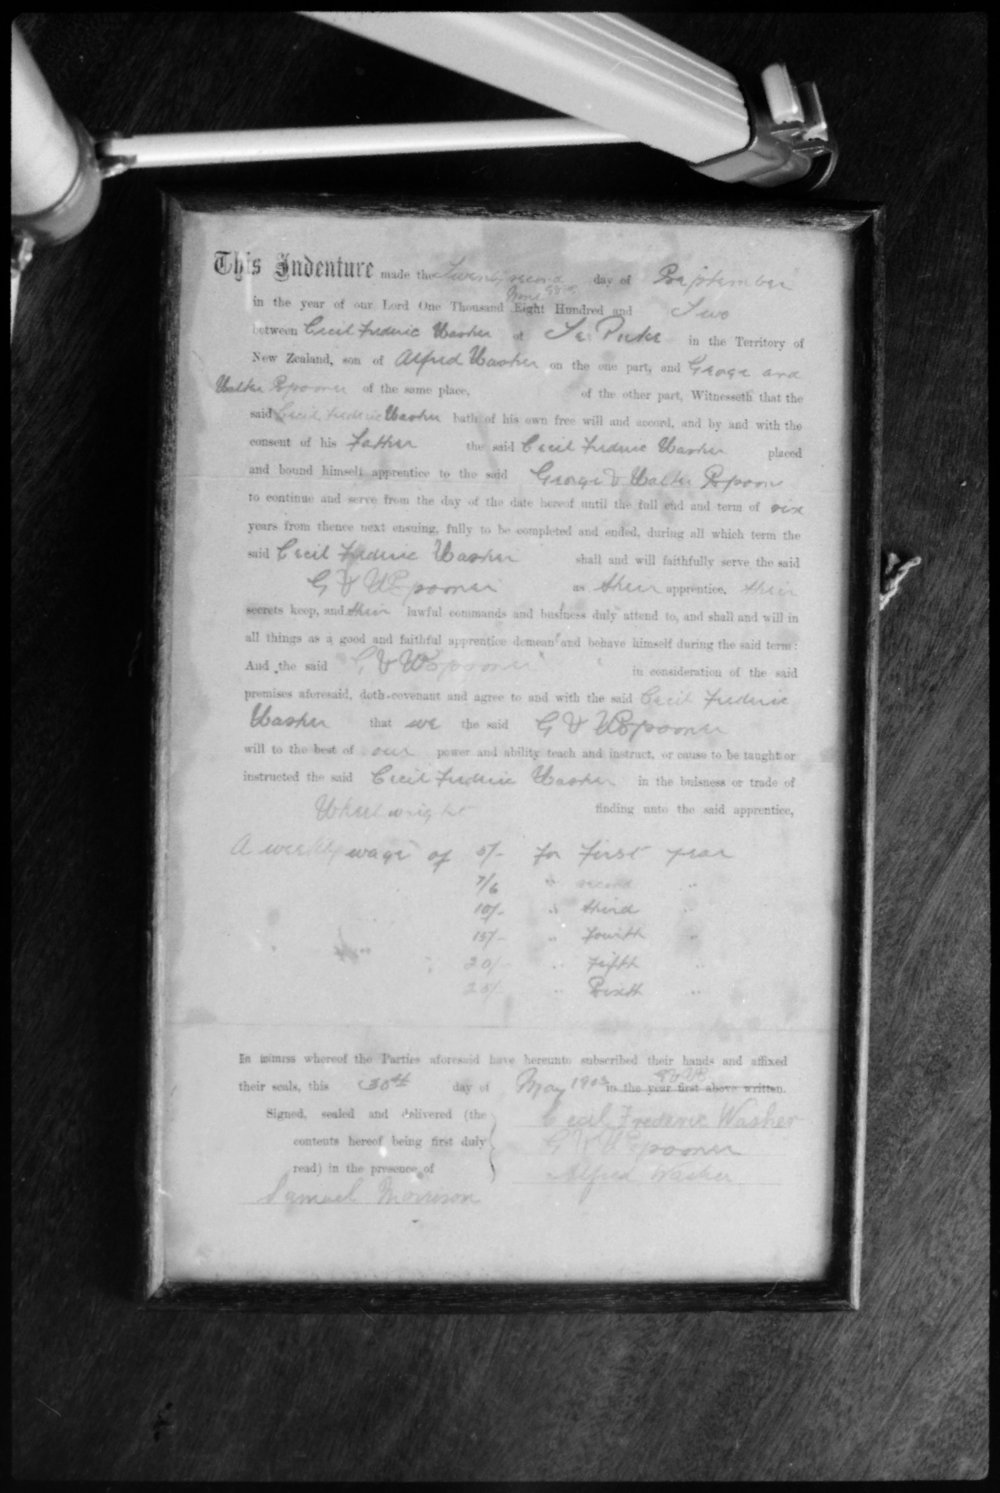 This Indenture made the Twenty second day of September
Nine G&W
in the year of our Lord One Thousand Eight Hundred and Two
between Cecil Frederic Washer of Te Puke in the Territory of
New Zealand, son of Alfred Washer on the one part, and George and
Walter Spooner of the same place, of the other part, Witnesseth that the
said Cecil Frederic Washer hath of his own free will and accord, and by and with the
consent of his Father the said Cecil Frederic Washer placed
and bound himself apprentice to the said George & Walter Spooner
to continue and serve from the day of the date hereof until the full end and term of six
years from thence next ensuing, fully to be completed and ended, during all which term the
said Cecil Frederic Washer shall and will faithfully serve the said
G & W Spooner as their apprentice, their
secrets keep, and their lawful commands and business duly attend to, and shall and will in
all things as a good and faithful apprentice demean and behave himself during the said term:
And the said G & W Spooner in consideration of the said
premises aforesaid, doth covenant and agree to and with the said Cecil Frederic
Washer that we the said G & W Spooner
will to the best of our power and ability teach and instruct, or cause to be taught or
instructed the said Cecil Frederic Washer in the buisness or trade of
Wheelwright finding unto the said apprentice,
A weekly wage of 5/- for first year
7/6 " second "
10/- " third "
15/- " fourth "
20/- " Fifth "
25/- " Sixth "
In witness whereof the Parties aforesaid have hereunto subscribed their hands and affixed
their seals, this 30th day of May 1903 in the year first above written.
Signed, sealed and delivered (the Cecil Frederic Washer
contents hereof being first duly G & W Spooner
read) in the presence of Alfred Washer
Samuel Morrison